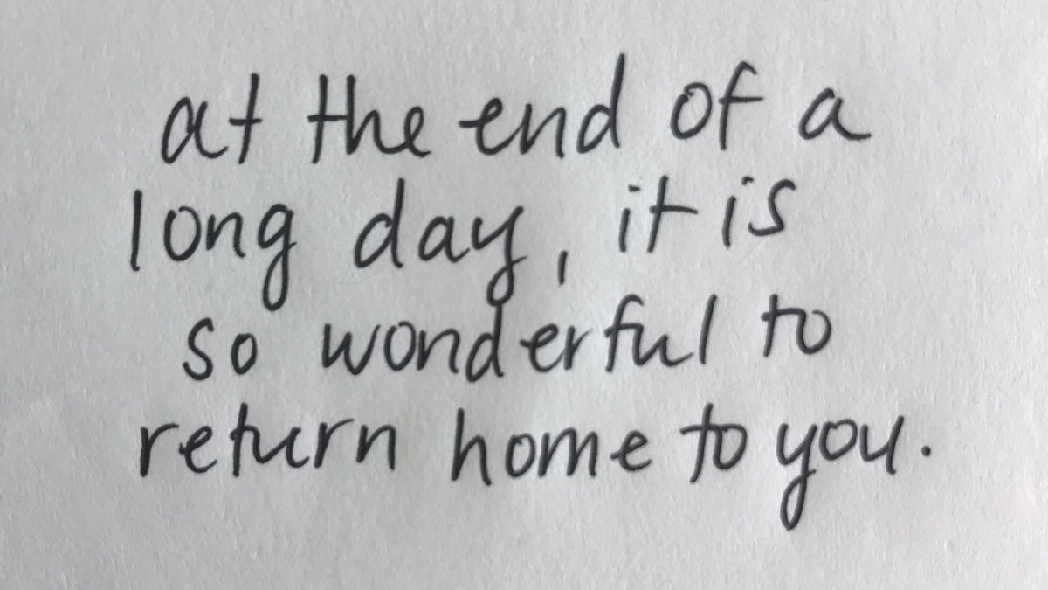 at the end of a
long day, it is
so wonderful to
return home to you.